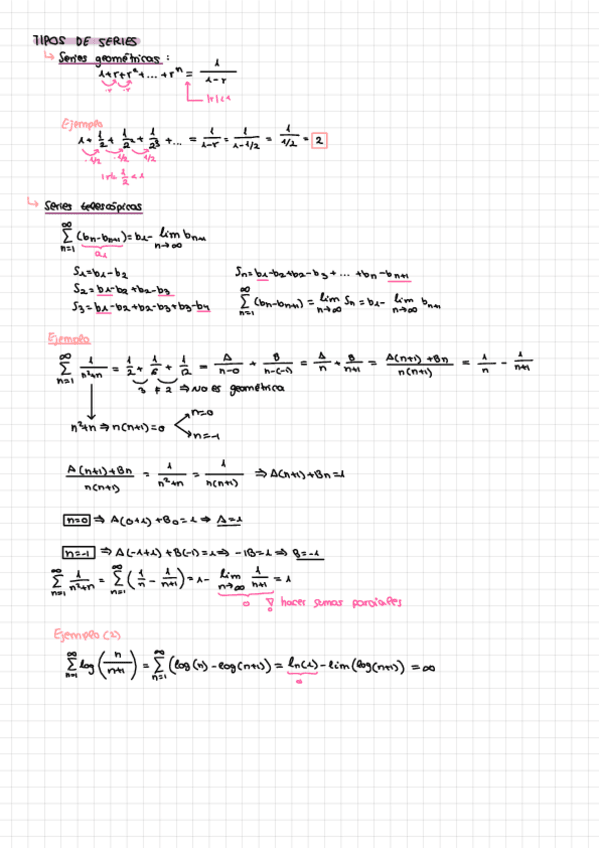 TIPOS DE SERIES
↳ Series geométricas:
1+r+r²+...+rⁿ = 1/(1-r)
·r ·r
|r|<1
Ejemplo
1 + 1/2 + 1/2² + 1/2³ + ... = 1/(1-r) = 1/(1-1/2) = 1/(1/2) = 2
·1/2 ·1/2 1/2
|r|= 1/2 < 1
↳ Series telescópicas
∑_{n=1}^{∞} (bn-bn+1) = b1- lim_{n→∞} bn+1
a1
S1=b1-b2
Sn=b1-b2+b2-b3+ ... +bn-bn+1
S2=b1-b2+b2-b3
S3=b1-b2+b2-b3+b3-b4
∑_{n=1}^{∞} (bn-bn+1) = lim_{n→∞} Sn = b1- lim_{n→∞} bn+1
Ejemplo
∑_{n=1}^{∞} 1/(n²+n) = 1/2 + 1/6 + 1/12 = A/(n-0) + B/(n-(-1)) = A/n + B/(n+1) = (A(n+1)+Bn)/(n(n+1)) = 1/n - 1/(n+1)
3 ≠ 2 ⇒ NO es geométrica
n²+n ⇒ n(n+1)=0
n=0
n=-1
(A(n+1)+Bn)/(n(n+1)) = 1/(n²+n) = 1/(n(n+1)) ⇒ A(n+1)+Bn=1
n=0 ⇒ A(0+1)+B0=1 ⇒ A=1
n=-1 ⇒ A(-1+1)+B(-1)=1 ⇒ -1B=1 ⇒ B=-1
∑_{n=1}^{∞} 1/(n²+n) = ∑_{n=1}^{∞} (1/n - 1/(n+1)) = 1- lim_{n→∞} 1/(n+1) = 1
0 hacer sumas parciales
Ejemplo (2)
∑_{n=1}^{∞} log(n/(n+1)) = ∑_{n=1}^{∞} (log(n)-log(n+1)) = ln(1)-lim(log(n+1)) = ∞
0